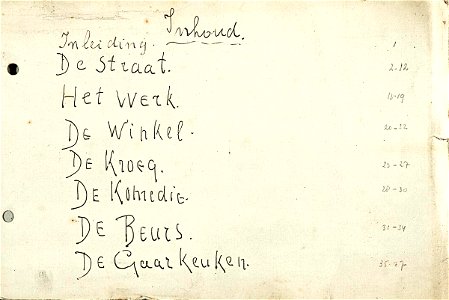 Inhoud.
Inleiding. 1
De Straat. 2-12
Het Werk. 13-19
De Winkel. 20-22
De Kroeg. 23-27
De Komedie. 28-30
De Beurs. 31-34
De Gaarkeuken. 35-37